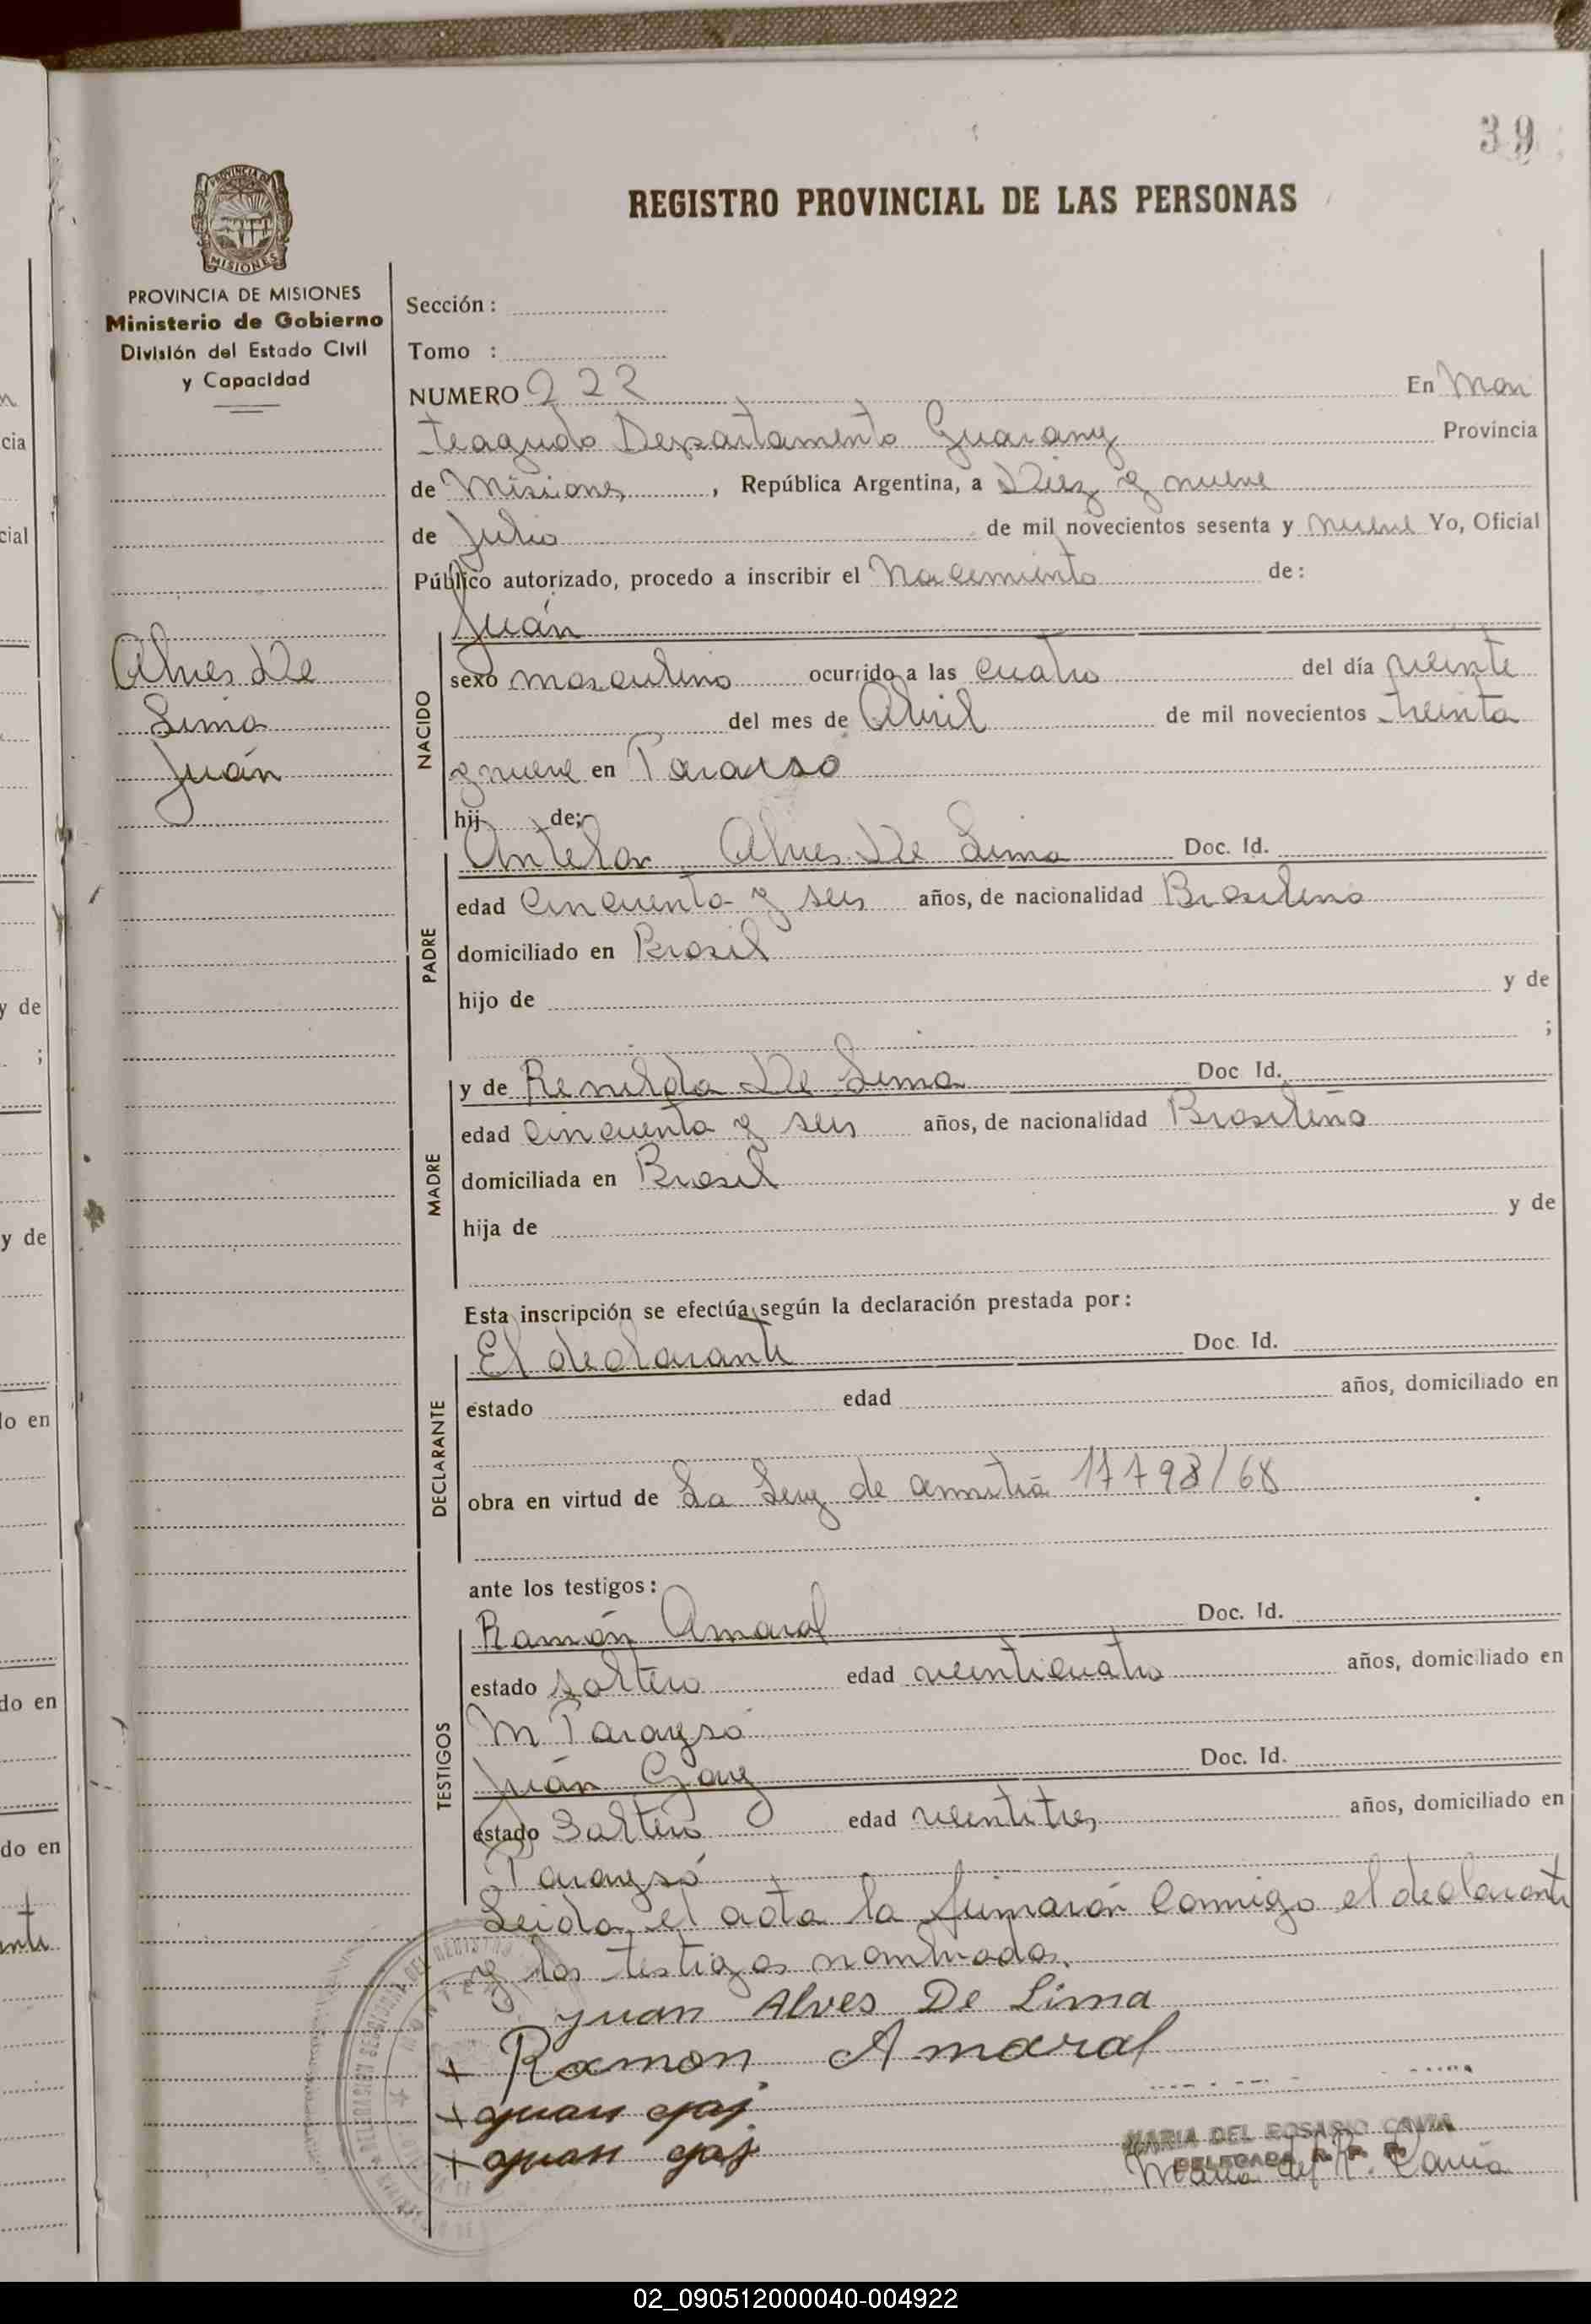 39
REGISTRO PROVINCIAL DE LAS PERSONAS
PROVINCIA DE
MISIONES
PROVINCIA DE MISIONES
Ministerio de Gobierno
División del Estado Civil
y Capacidad
Alves De
Lima
Juán
Sección :
Tomo :
NUMERO 222 En Mon
teagudo Departamento Guarany Provincia
de Misiones, República Argentina, a Diez y nueve
de Julio de mil novecientos sesenta y nueve Yo, Oficial
Público autorizado, procedo a inscribir el Nacimiento de:
Juán
NACIDO
sexo masculino ocurrido a las cuatro del día veinte
del mes de Abril de mil novecientos treinta
y nueve en Paraiso
hij de:
PADRE
Alves De Lima Doc. Id.
edad cincuenta y seis años, de nacionalidad Brasilero
domiciliado en Brasil
hijo de y de
;
MADRE
y de Renilda De Lima Doc Id.
edad cincuenta y seis años, de nacionalidad Brasileña
domiciliada en Brasil
hija de y de
Esta inscripción se efectúa según la declaración prestada por:
DECLARANTE
El declarante Doc. Id.
estado edad años, domiciliado en
obra en virtud de La Ley de 17798/68
ante los testigos:
TESTIGOS
Ramón Amaral Doc. Id.
estado soltero edad veinticuatro años, domiciliado en
Parayso
Juán Gay Doc. Id.
estado Soltero edad veintitres años, domiciliado en
Paraysó
Leida el acta la firmarón conmigo el declarante
y los testigos nombrados.
Juan Alves De Lima
+ Ramon Amaral
+ Juan gaj
+ Juan gaj
MARIA DEL ROSARIO CAVIA
DELEGADA R. P. P.
Maria del R. Cavia
02_090512000040-004922